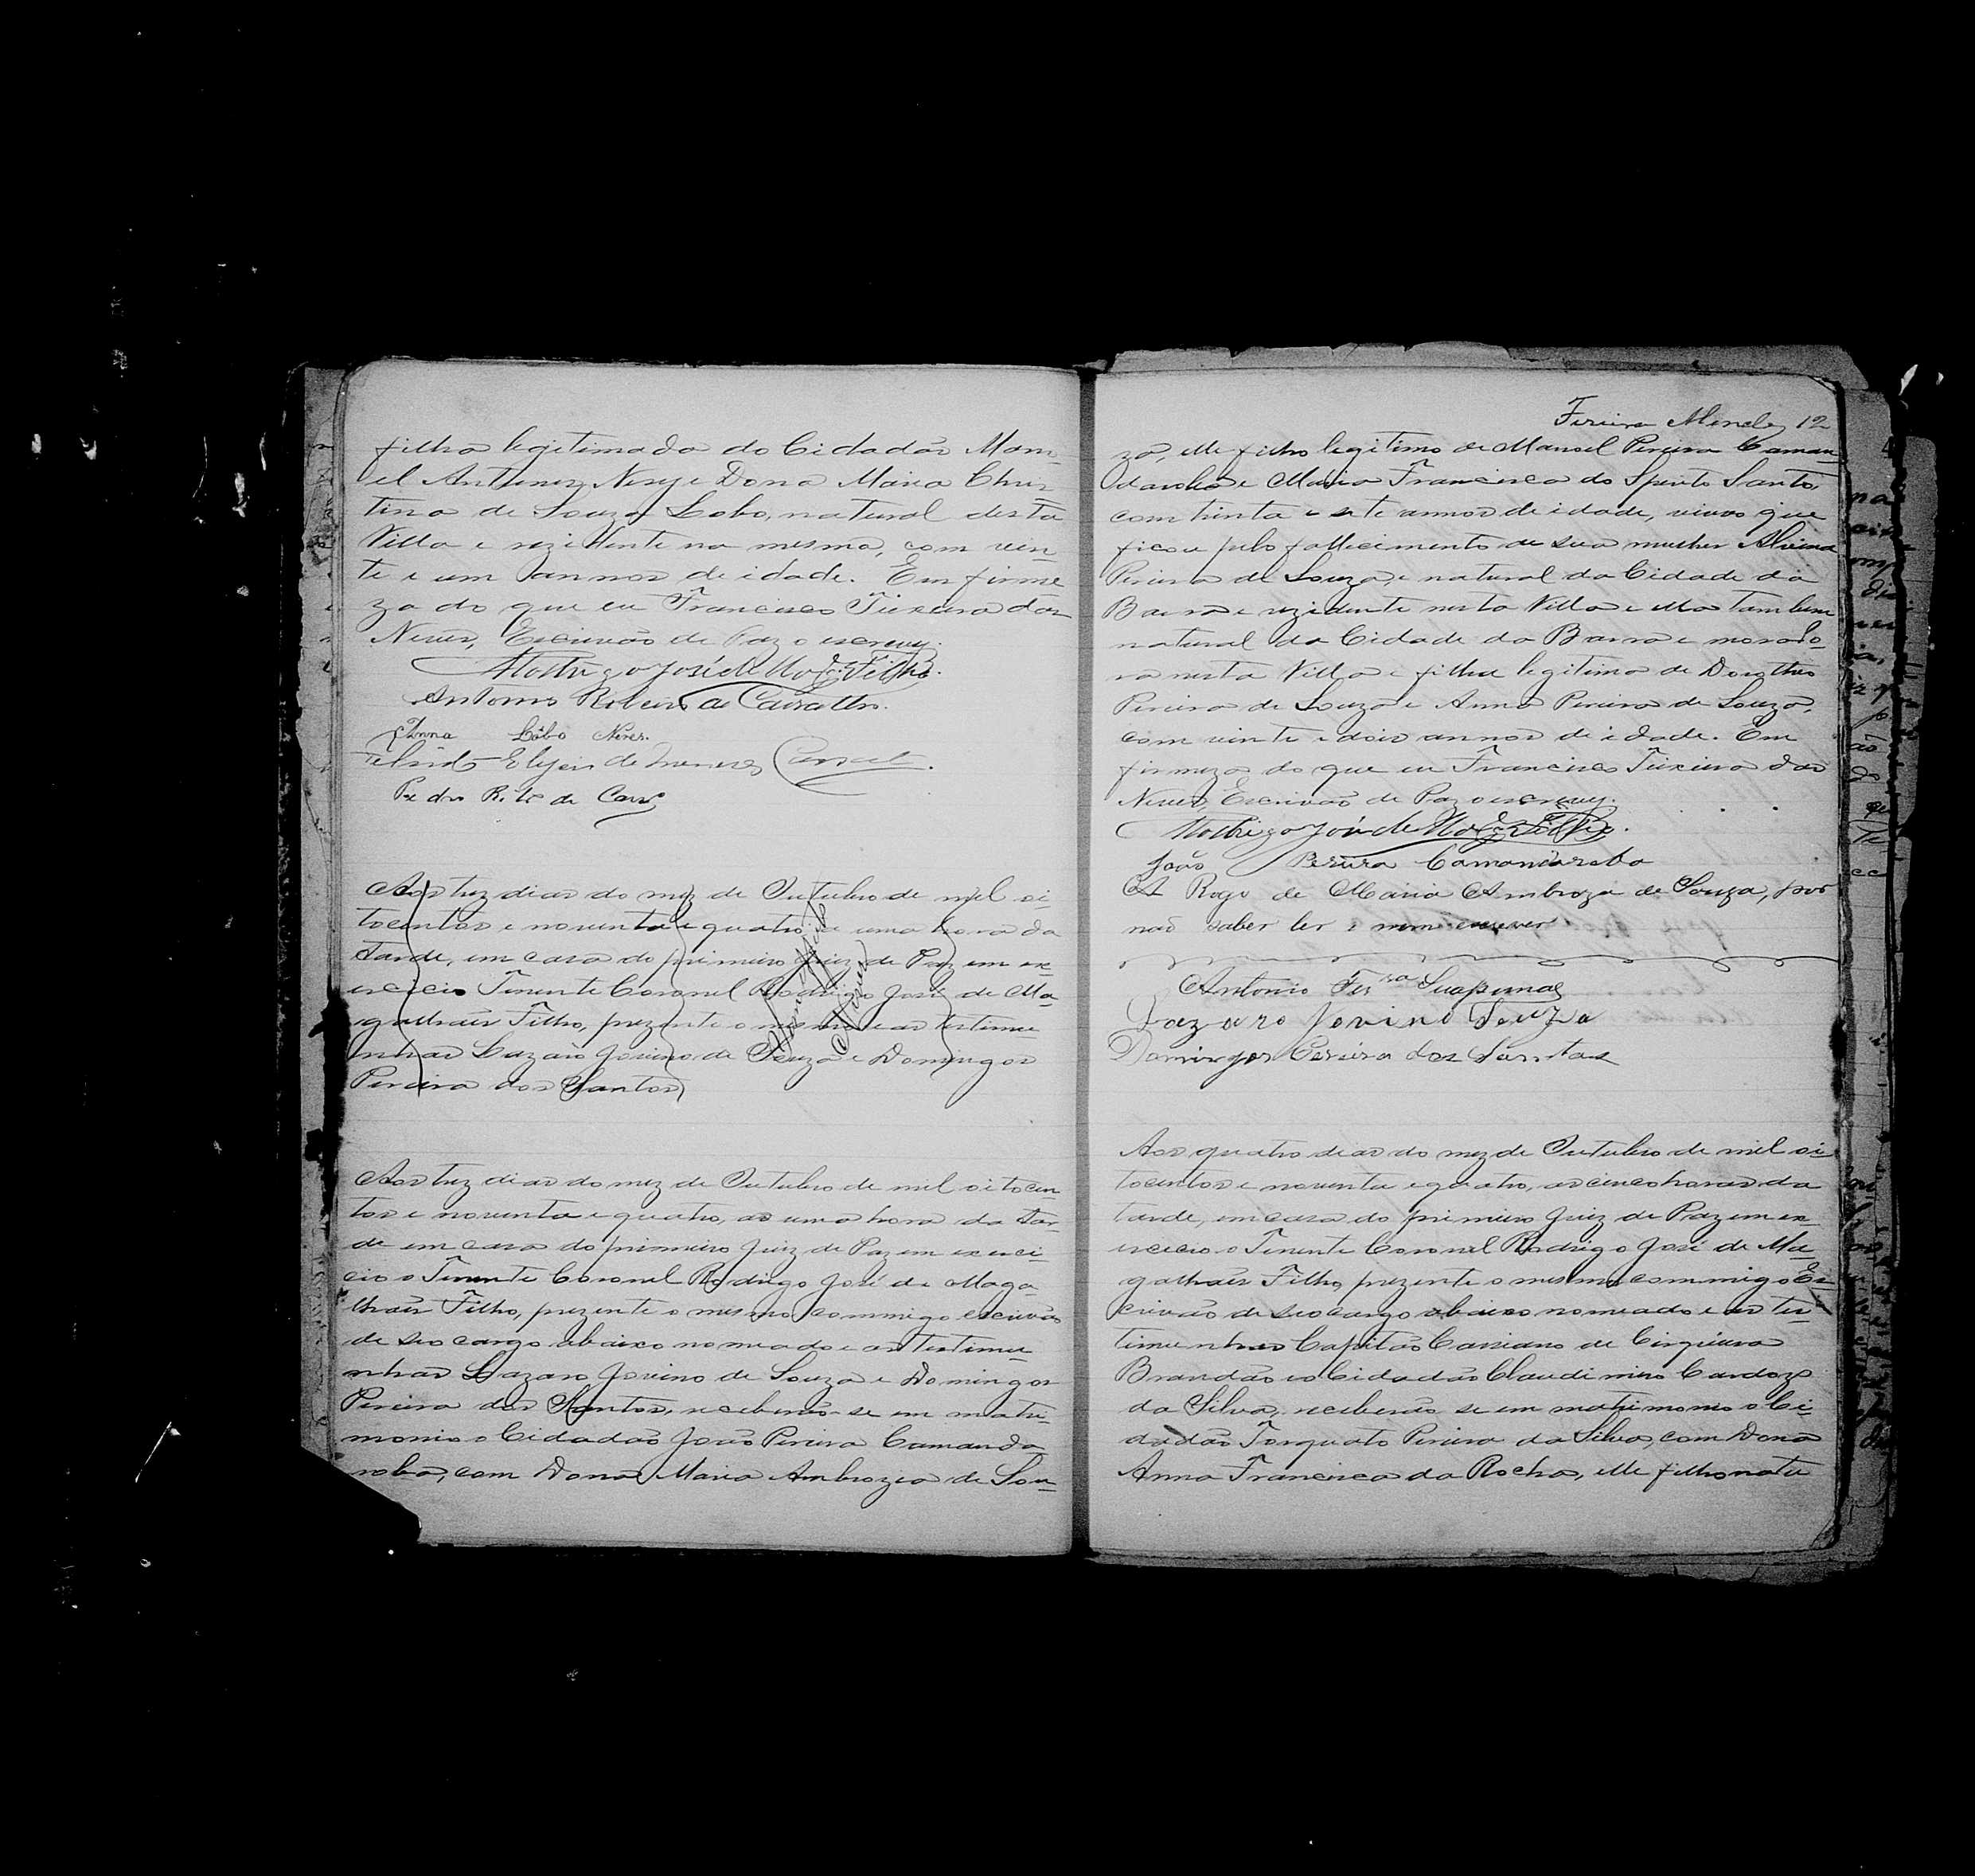 filha legitimada do Cidadão Mano-
el Antunes Neves e Dona Maria Chris-
tina de Souza Lobo, natural desta
Villa e rezidente na mesma, com vin-
te e um annos de idade. Em firme
za do que eu Francisco Teixeira das
Neves, Escrivão de Paz o escrevy.
Rodrigo José de Mag.es Filho.
Antonio Ribeiro de Carvalho.
Anna Lôbo Neves.
de Menezes
Pedro
Aos trez dias do mez de Outubro de mil oi-
tocentos e noventa e quatro, a uma hora da
tarde, em casa do primeiro Juiz de Paz em ex-
ercicio Tenente Coronel Rodrigo José de Ma-
galhães Filho, prezente o mesmo e as testimu-
nhas Lazaro Jovino de Souza e Domingos
Pereira dos Santos
Aos trez dias do mez de Outubro de mil oitocen-
tos e noventa e quatro, as uma hora da tar-
de em casa do primeiro Juiz de Paz em exerci-
cio o Tenente Coronel Rodrigo José de Maga-
lhães Filho, prezente o mesmo commigo escrivão
de seo cargo abaixo nomeado e as testimu-
nhas Lazaro Jovino de Souza e Domingos
Pereira dos Santos, receberão-se em matri-
monio o Cidadão João Pereira Camanda
roba, com Dona Maria Ambrozia de Sou-
12
za, elle filho legitimo de Manoel Pereira Caman-
daroba e Maria Francisca do Spirito Santo,
com trinta e sete annos de idade, viuvo que
ficou pelo fallecimento de sua mulher
Pereira de Souza, e natural da Cidade da
Barra e rezidente nesta Villa e ella tambem
natural da Cidade da Barra e morado-
ra nesta Villa e filha legitima de Dorotheo
Pereira de Souza e Anna Pereira de Souza,
com vinte e dois annos de idade. Em
firmeza do que eu Francisco Teixeira das
Neves, Escrivão de Paz o escrevy.
Rodrigo José de Mag.es Filho.
João Pereira Camandaroba
A Rogo de Maria Ambroza de Souza, por
não saber ler e nem escrever
Antonio Fer.ra
Lazaro Jovino Souza
Domingos Pereira dos Santos
Aos quatro dias do mez de Outubro de mil oi-
tocentos e noventa e quatro, as cinco horas da
tarde, em casa do primeiro Juiz de Paz em ex-
ercicio o Tenente Coronel Rodrigo José de Ma-
galhães Filho, prezente o mesmo commigo Es-
crivão de seo cargo abaixo nomeado e as tes-
timunhas Capitão Cassiano de Cirqueira
Brandão e o Cidadão Claudimiro Cardozo
da Silva, receberão se em matrimonio o Ci-
dadão Torquato Pereira da Silva, com Dona
Anna Francisca da Rocha, elle filho natu